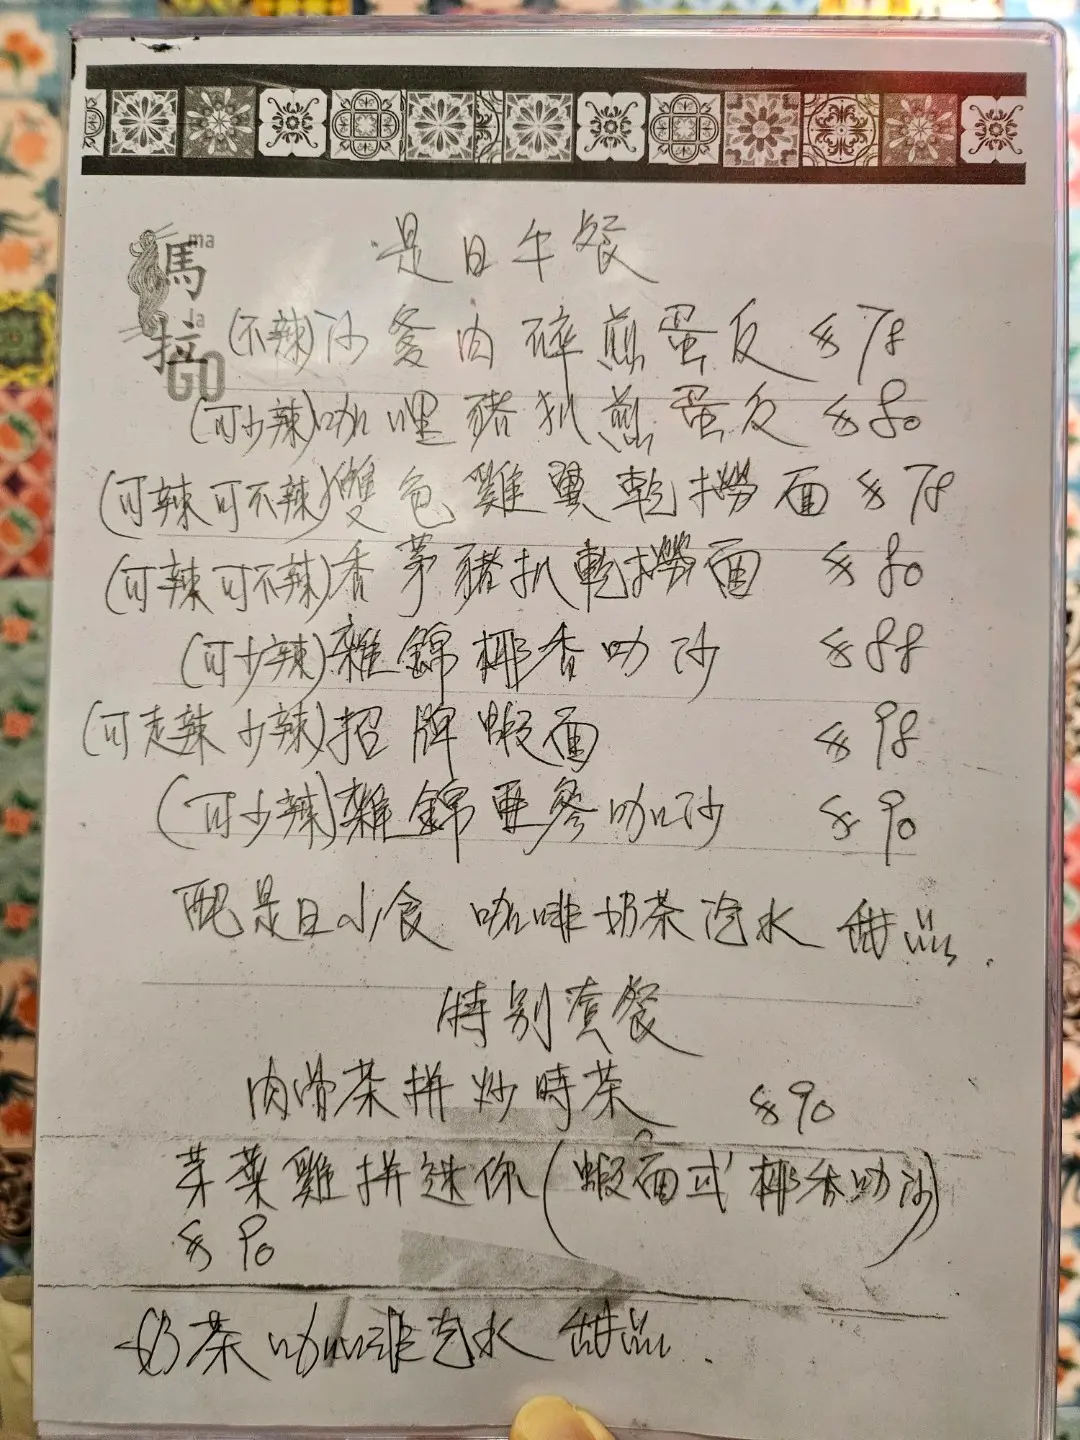 馬拉GO
ma
la
是日午餐
(不辣)沙爹肉碎煎蛋反 $78
(可少辣)咖哩豬扒煎蛋反 $80
(可辣可不辣)雙色雞翼乾撈面 $78
(可辣可不辣)香茅豬扒乾撈面 $80
(可少辣)雜錦椰香叻沙 $88
(可走辣 少辣)招牌蝦面 $98
(可少辣)雜錦亞參叻沙 $90
配是日小食 咖啡奶茶汽水 甜品.
特別套餐
肉骨茶拼炒時菜 $90
芽菜雞拼迷你(蝦面或椰香叻沙)
$90
奶茶咖啡汽水 甜品.